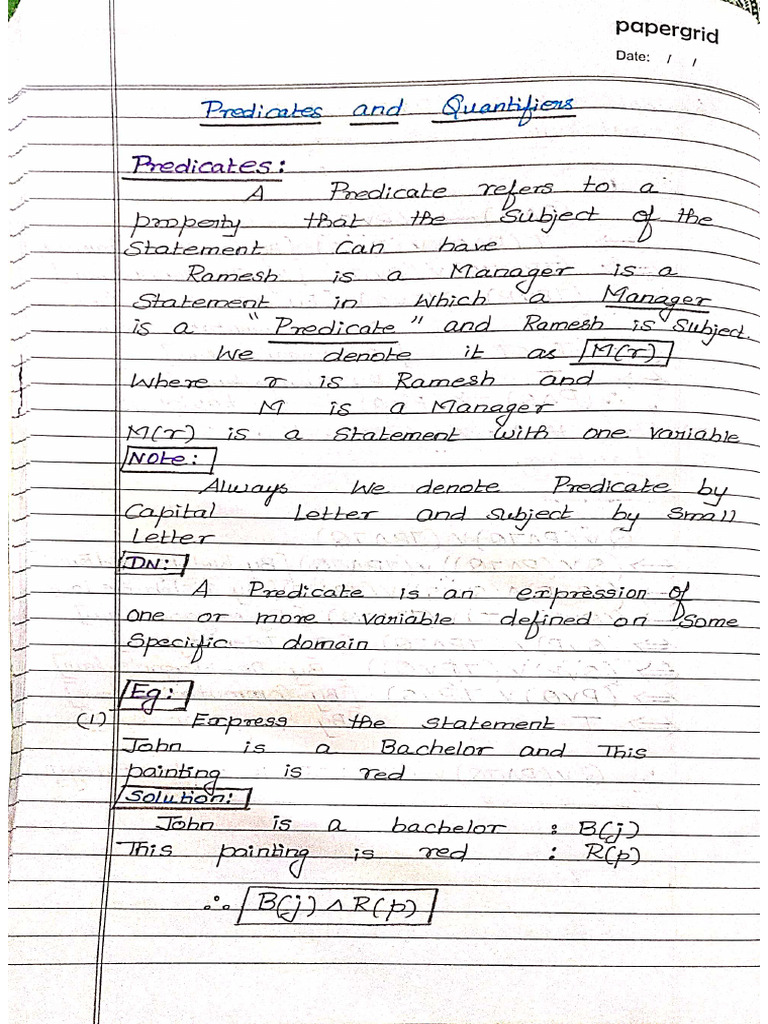 papergrid
Date: / /
Predicates and Quantifiers
Predicates:
A Predicate refers to a
property that the Subject of the
Statement Can have
Ramesh is a Manager is a
Statement in which a Manager
is a "Predicate" and Ramesh is Subject.
We denote it as M(r)
Where r is Ramesh and
M is a Manager
M(r) is a Statement with one variable
Note:
Always We denote Predicate by
Capital Letter and Subject by Small
Letter
DN:
A Predicate is an expression of
one or more variable defined on Some
Specific domain
Eg:
(1) Express the statement
John is a Bachelor and This
painting is red
Solution:
John is a bachelor : B(j)
This painting is red : R(p)
∴ B(j) ∧ R(p)